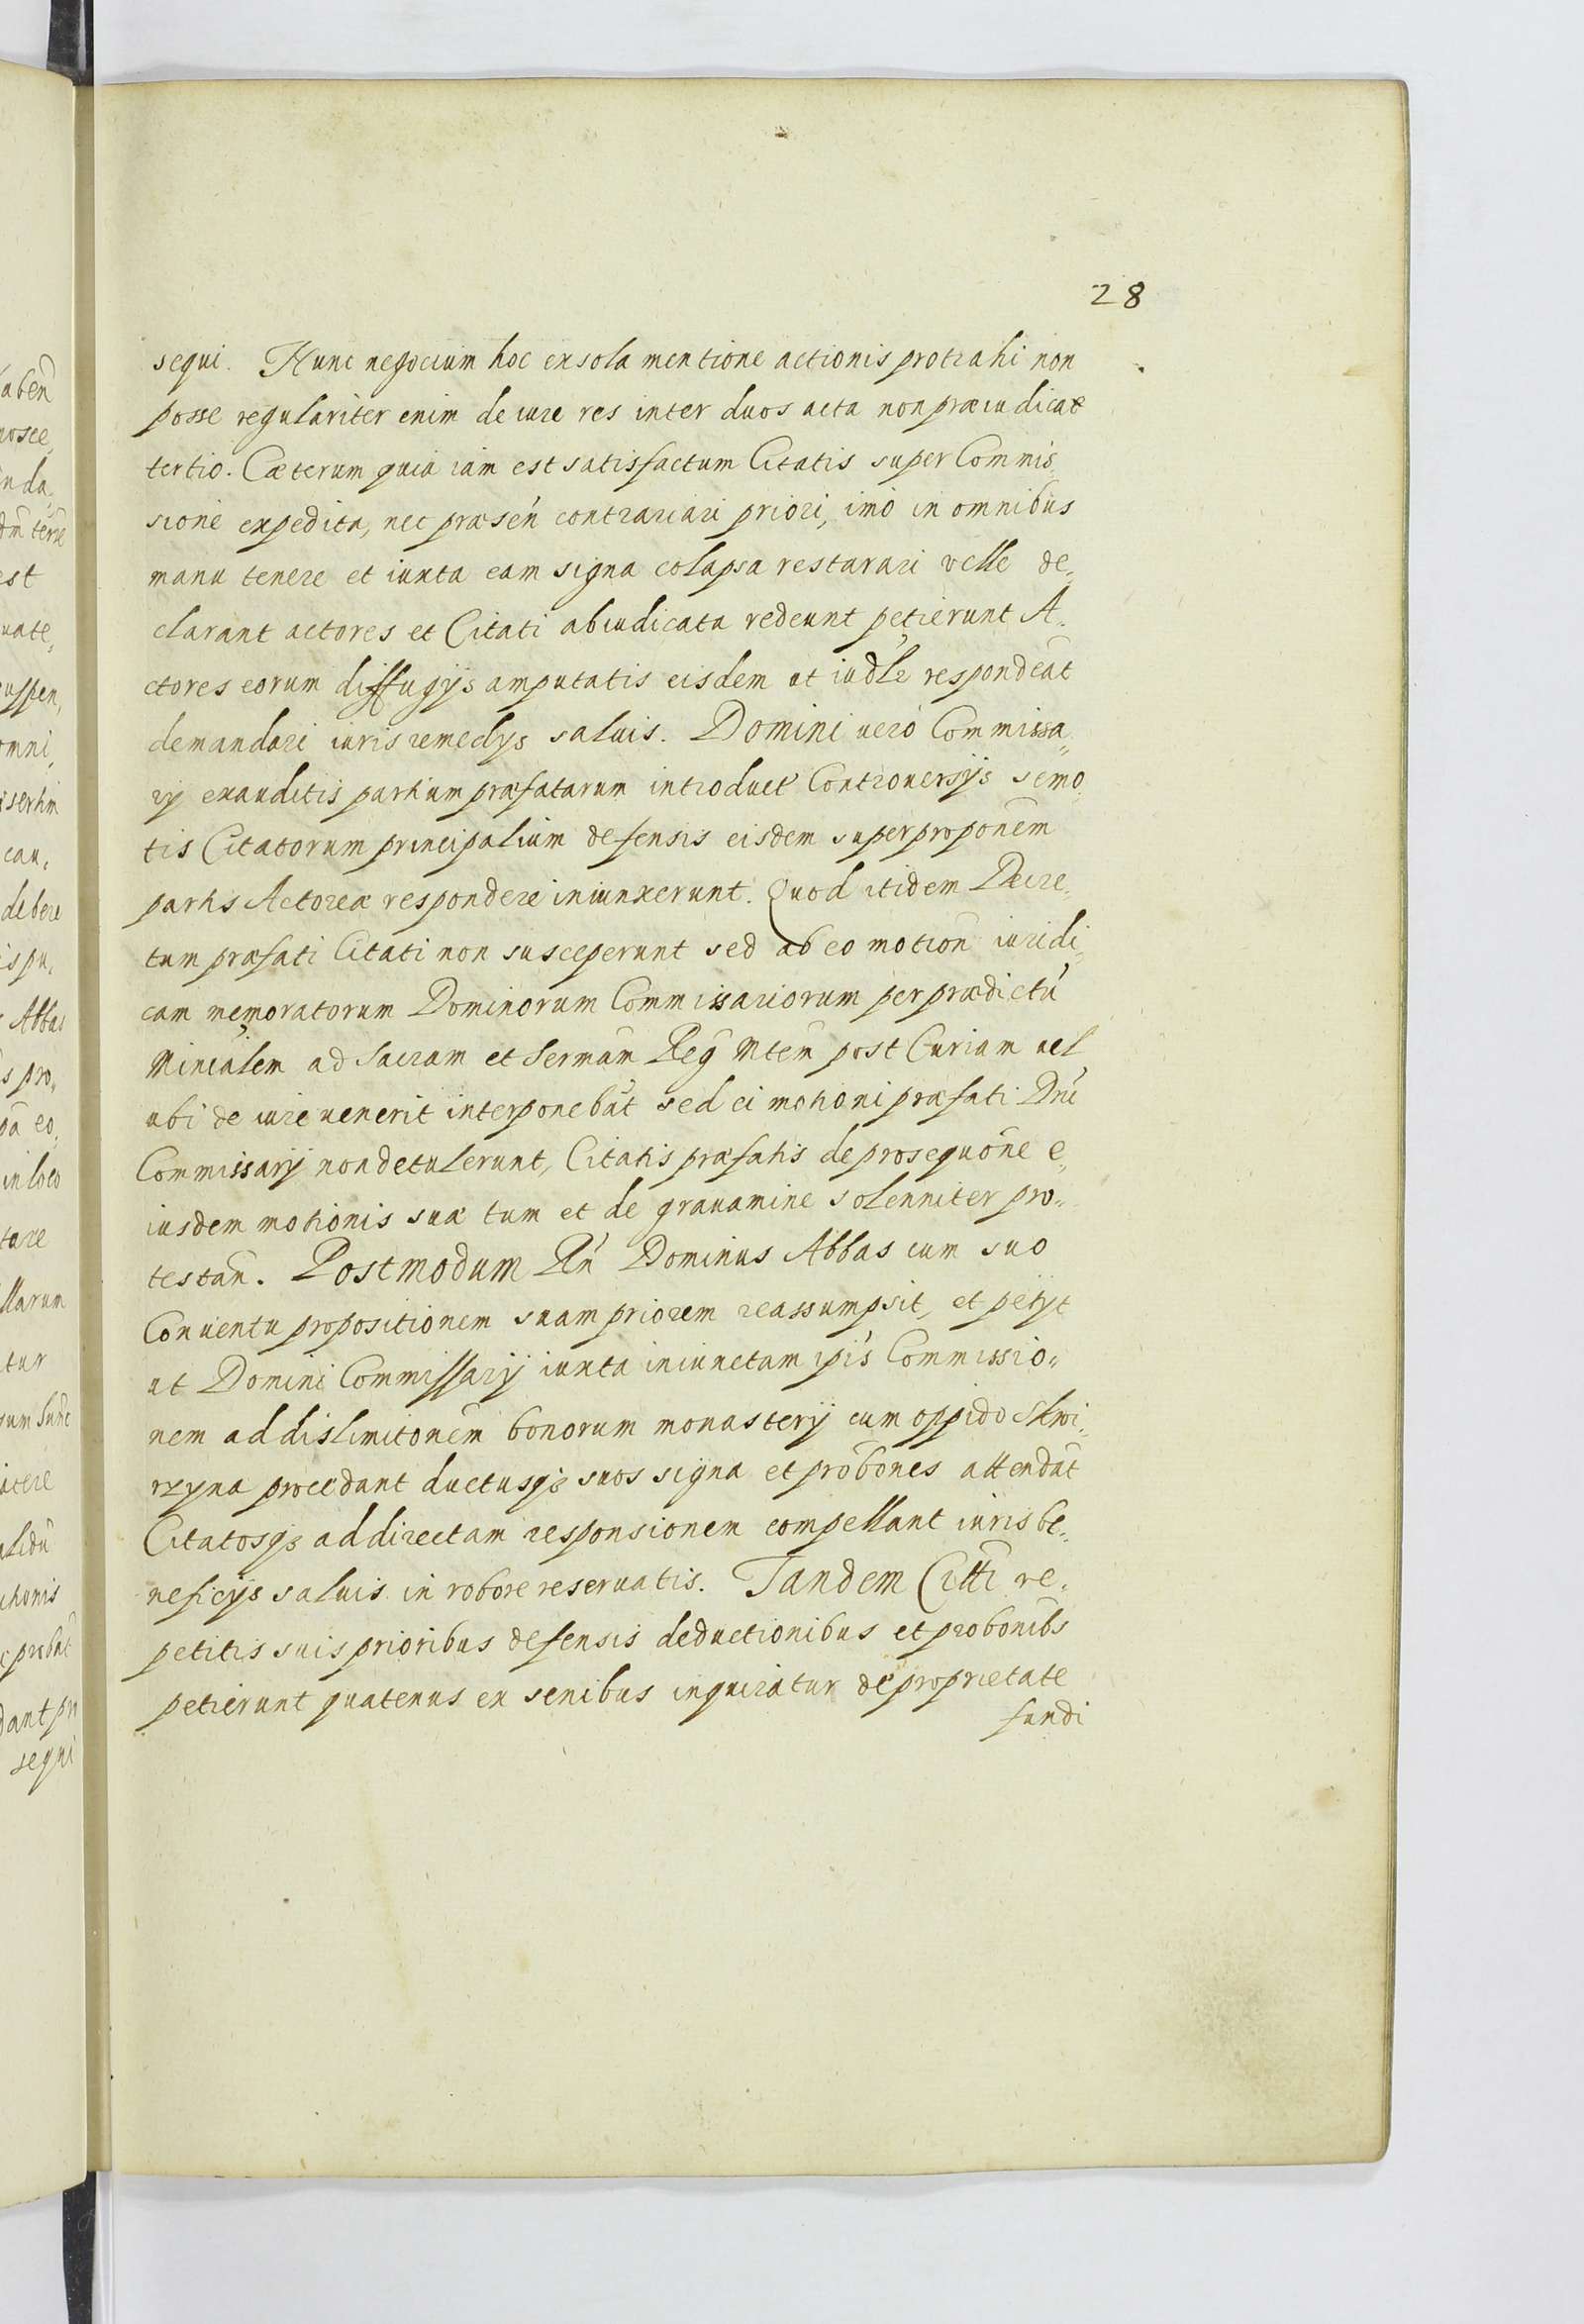 28
sequi. Hunc negocium hoc ex sola mentione actionis protrahi non
posse regulariter enim de iure res inter duos acta non præiudicat
tertio. Cæterum quia iam est satisfactum Citatis super Commis„
sione expedita, nec præsen̄ contrariari priori, imo in omnibus
manu tenere et iuxta eam signa colapsa restarari velle de„
clarant actores et Citati abiudicata redeunt petierunt A„
ctores eorum diffugijs amputatis eisdem ut iudłr respondeāt
demandari iuris remedys saluis. Domini uero Commissa„
rij exauditis partium præfatarum introduct Controuersijs semo„
tis Citatorum principalium defensis eisdem super proponēm
partis Actoreæ respondere iniunxerunt. Quod itidem Decre„
tum præfati Citati non susceperunt sed ab eo motionē iuridi„
cam memoratorum Dominorum Commissariorum per prædictū
Minialem ad Sacram et Sermām Reg̃ Mtem̃ post Curiam uel
ubi de iure uenerit interponebāt sed ei motioni præfati Dnī
Commissarij non detulerunt, Citatis præfatis de prosequōne e„
iusdem motionis suæ tum et de grauamine solenniter pro„
testān. Postmodum Rn̄ Dominus Abbas cum suo
Conuentu propositionem suam priorem reassumpsit, et petÿt
ut Domini Commissarij iuxta iniunctam ipīs Commissio„
nem ad dislimitonēm bonorum monasterij cum oppido Skwi„
rzyna procedant ductusq̨ suos signa et probōnes attendāt
Citatosq̨ ad directam responsionem compellant iuris be„
neficijs saluis in robore reseruatis. Tandem Citti re„
petitis suis prioribus defensis deductionibus et probonībs
petierunt quatenus ex senibus inquiratur de proprietate
fundi